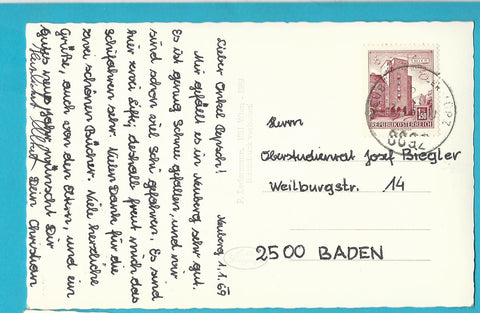 Neuberg, 1.1.69
Lieber Onkel Pepsch!
Mir gefällt es in Neuberg sehr gut.
Es ist genug Schnee gefallen, und wir
sind schon viel Schi gefahren. Es sind
hier zwei Lifte, deshalb freut mich das
Schifahren sehr. Vielen Dank für die
zwei schönen Bücher. Viele herzliche
Grüße, auch von den Eltern, und ein
gutes neues Jahr, wünscht Dir
Dein Christian
REPUBLIK ÖSTERREICH
8692
Herrn
Oberstudienrat Josef Biegler
Weilburgstr. 14
2500 BADEN